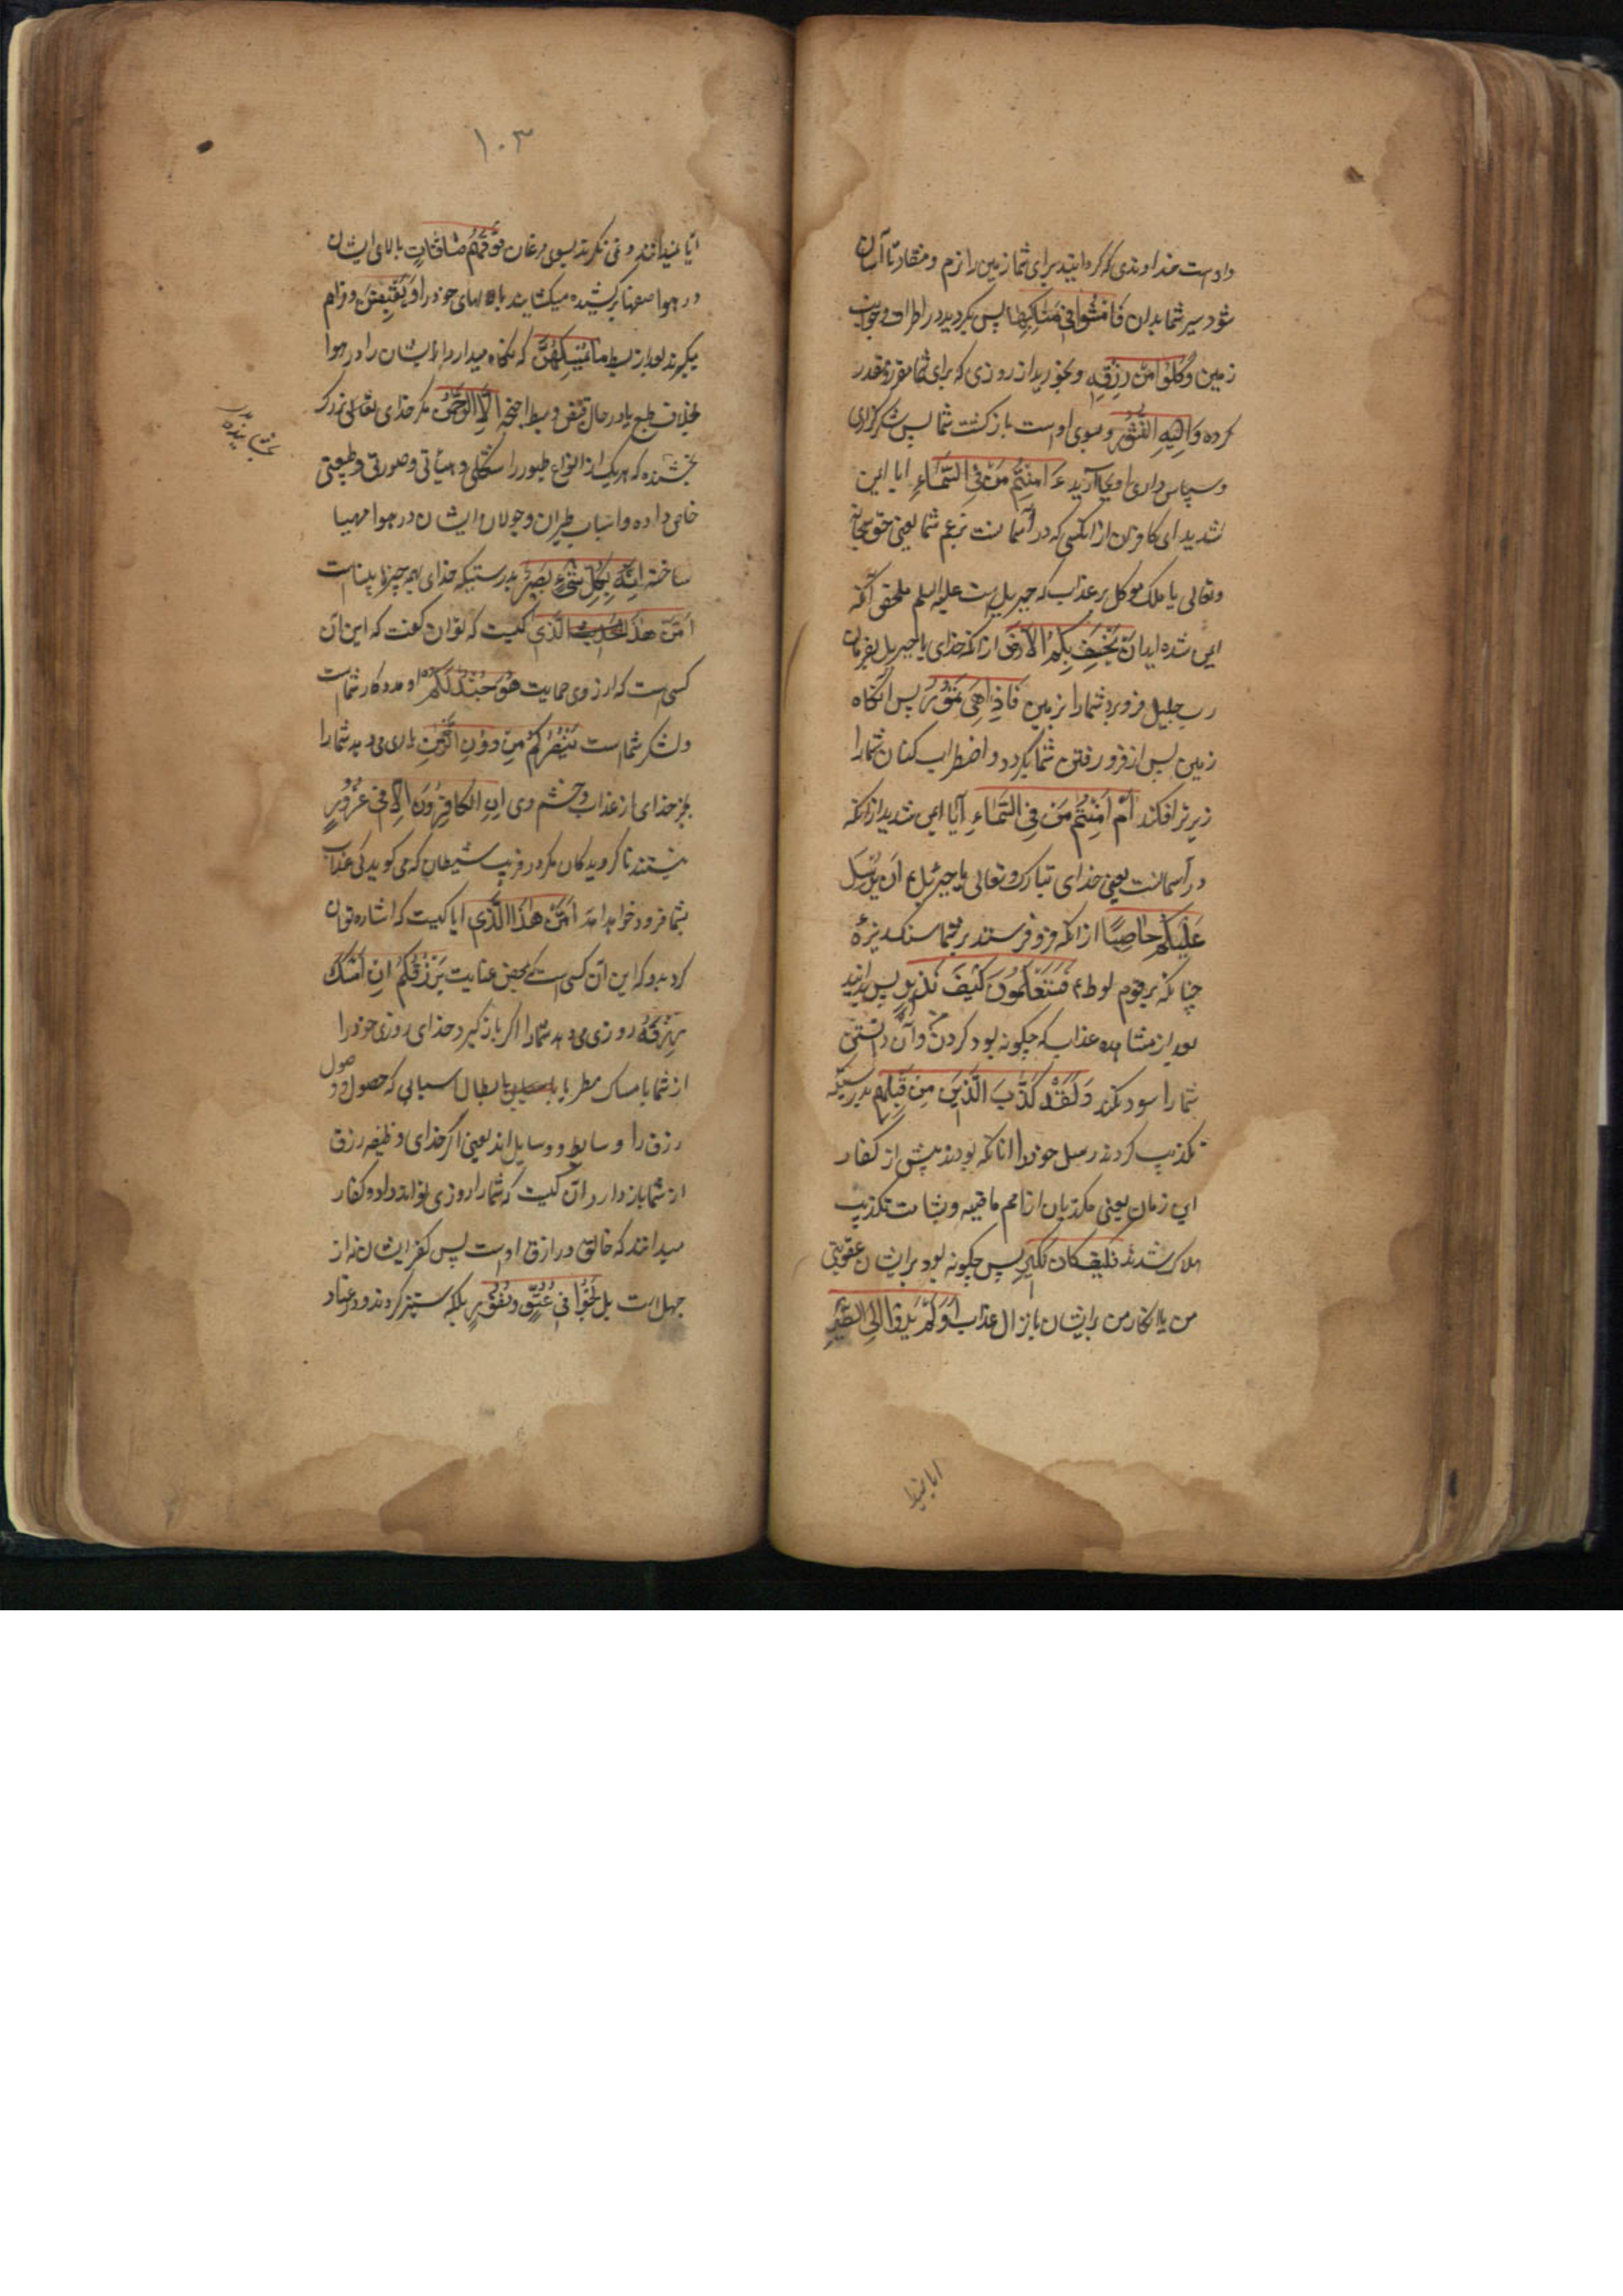 واوست خداوندی که گردانید برای شما زمین را نرم و منقاد تا آسان
شود سیر شما بدان فَامْشُوا فِی مَنَاکِبِهَا پس بگردید در اطراف و جوانب
زمین وَکُلُوا مِنْ رِزْقِهِ و بخورید از روزی که برای شما مقرر و مقدر
کرده وَاِلَیْهِ النُّشُورُ و بسوی اوست بازگشت شما پس شکرگزاری
و سپاس داری او بجا آرید ءَاَمِنْتُمْ مَنْ فِی السَّمَاءِ ایا ایمن
شدید ای کافران از انکسی که در آسمانست بزعم شما یعنی حق سبحانه
وتعالی یا ملک موکل بر عذاب که جبریل است علیه السلم ملحق آنکه
ایمن شده اید اَنْ یَخْسِفَ بِکُمُ الْاَرْضَ از انکه خدای یا جبریل بفرمان
رب جلیل فرو برد شما را بزمین فَاِذَا هِیَ تَمُورُ پس آنگاه
زمین پس از فرو رفتن شما بگردد و اضطراب کنان شما را
زیرتر افکند اَمْ اَمِنْتُمْ مَنْ فِی السَّمَاءِ آیا ایمن شدید از انکه
در آسمانست یعنی خدای تبارک وتعالی یا جبرئیل ع اَنْ یُرْسِلَ
عَلَیْکُمْ حَاصِبًا از انکه فرو فرستد بر شما سنک ریزه
چنانکه بر قوم لوط ع فَسَتَعْلَمُونَ کَیْفَ نَذِیرِ پس بدانید
بعد از مشاهده عذاب که چگونه بود کردن و آن دانستن
شما را سود نکند وَلَقَدْ کَذَّبَ الَّذِینَ مِنْ قَبْلِهِمْ بدرستیکه
تکذیب کردند رسل خود را انانکه بودند پیش از کفار
این زمان یعنی مکذبان از امم ماضیه و بشامت تکذیب
هلاک شدند فَکَیْفَ کَانَ نَکِیرِ پس چگونه بود برایشان عقوبتی
من یا انکار من برایشان بانزال عذاب اَوَلَمْ یَرَوْا اِلَی الطَّیْرِ
ایا نمیدا
۱۰۳
آیا نمیدانند و نمی نگرند بسوی مرغان فَوْقَهُمْ صَافَّاتٍ بالای ایشان
در هوا صفها برکشیده میکشایند بالهای خود را وَیَقْبِضْنَ و فراهم
میگیرند بعد از بسط مَا یُمْسِکُهُنَّ که نگاه میدارد ایشان را در هوا
بخلاف طبع یا در حال قبض و بسط اجنحه اِلَّا الرَّحْمٰنُ مگر خدای تعالی
بخشنده که هر یک از انواع طیور را شکلی و هیأتی و صورتی و طبیعتی
خاص داده و اسباب طیران و جولان ایشان در هوا مهیا
ساخته اِنَّهُ بِکُلِّ شَیْءٍ بَصِیرٌ بدرستیکه خدای بهمه چیزها بیناست
اَمَّنْ هٰذَا الَّذِی کیست که توان گفت که این آن
کسی ست که از روی حمایت هُوَ جُنْدٌ لَکُمْ او مددکار شماست
و لشکر شماست یَنْصُرُکُمْ مِنْ دُونِ الرَّحْمٰنِ یاری میدهد شما را
بجز خدای از عذاب و خشم وی اِنِ الْکَافِرُونَ اِلَّا فِی غُرُورٍ
نیستند ناگرویدکان مگر در فریب شیطان که می گوید که عذاب
بشما فرود نخواهد امد اَمَّنْ هٰذَا الَّذِی ایا کیست که اشاره توان
کرد بدو که این آن کسی است که بمحض عنایت یَرْزُقُکُمْ اِنْ اَمْسَکَ
رِزْقَهُ روزی میدهد شما را اگر بازگیرد خدای روزی خود را
از شما بامساک مطر یا بابطال اسبابی که حصول و وصول
رزق را وسایط و وسایل اند یعنی اگر خدای وظیفه رزق
از شما باز دارد آن کیست که شما را روزی تواند داد و کفار
میدانند که خالق و رازق اوست پس کفر ایشان نه از
جهل است بَلْ لَجُّوا فِی عُتُوٍّ وَنُفُورٍ بلکه ستیز کردند و در عناد